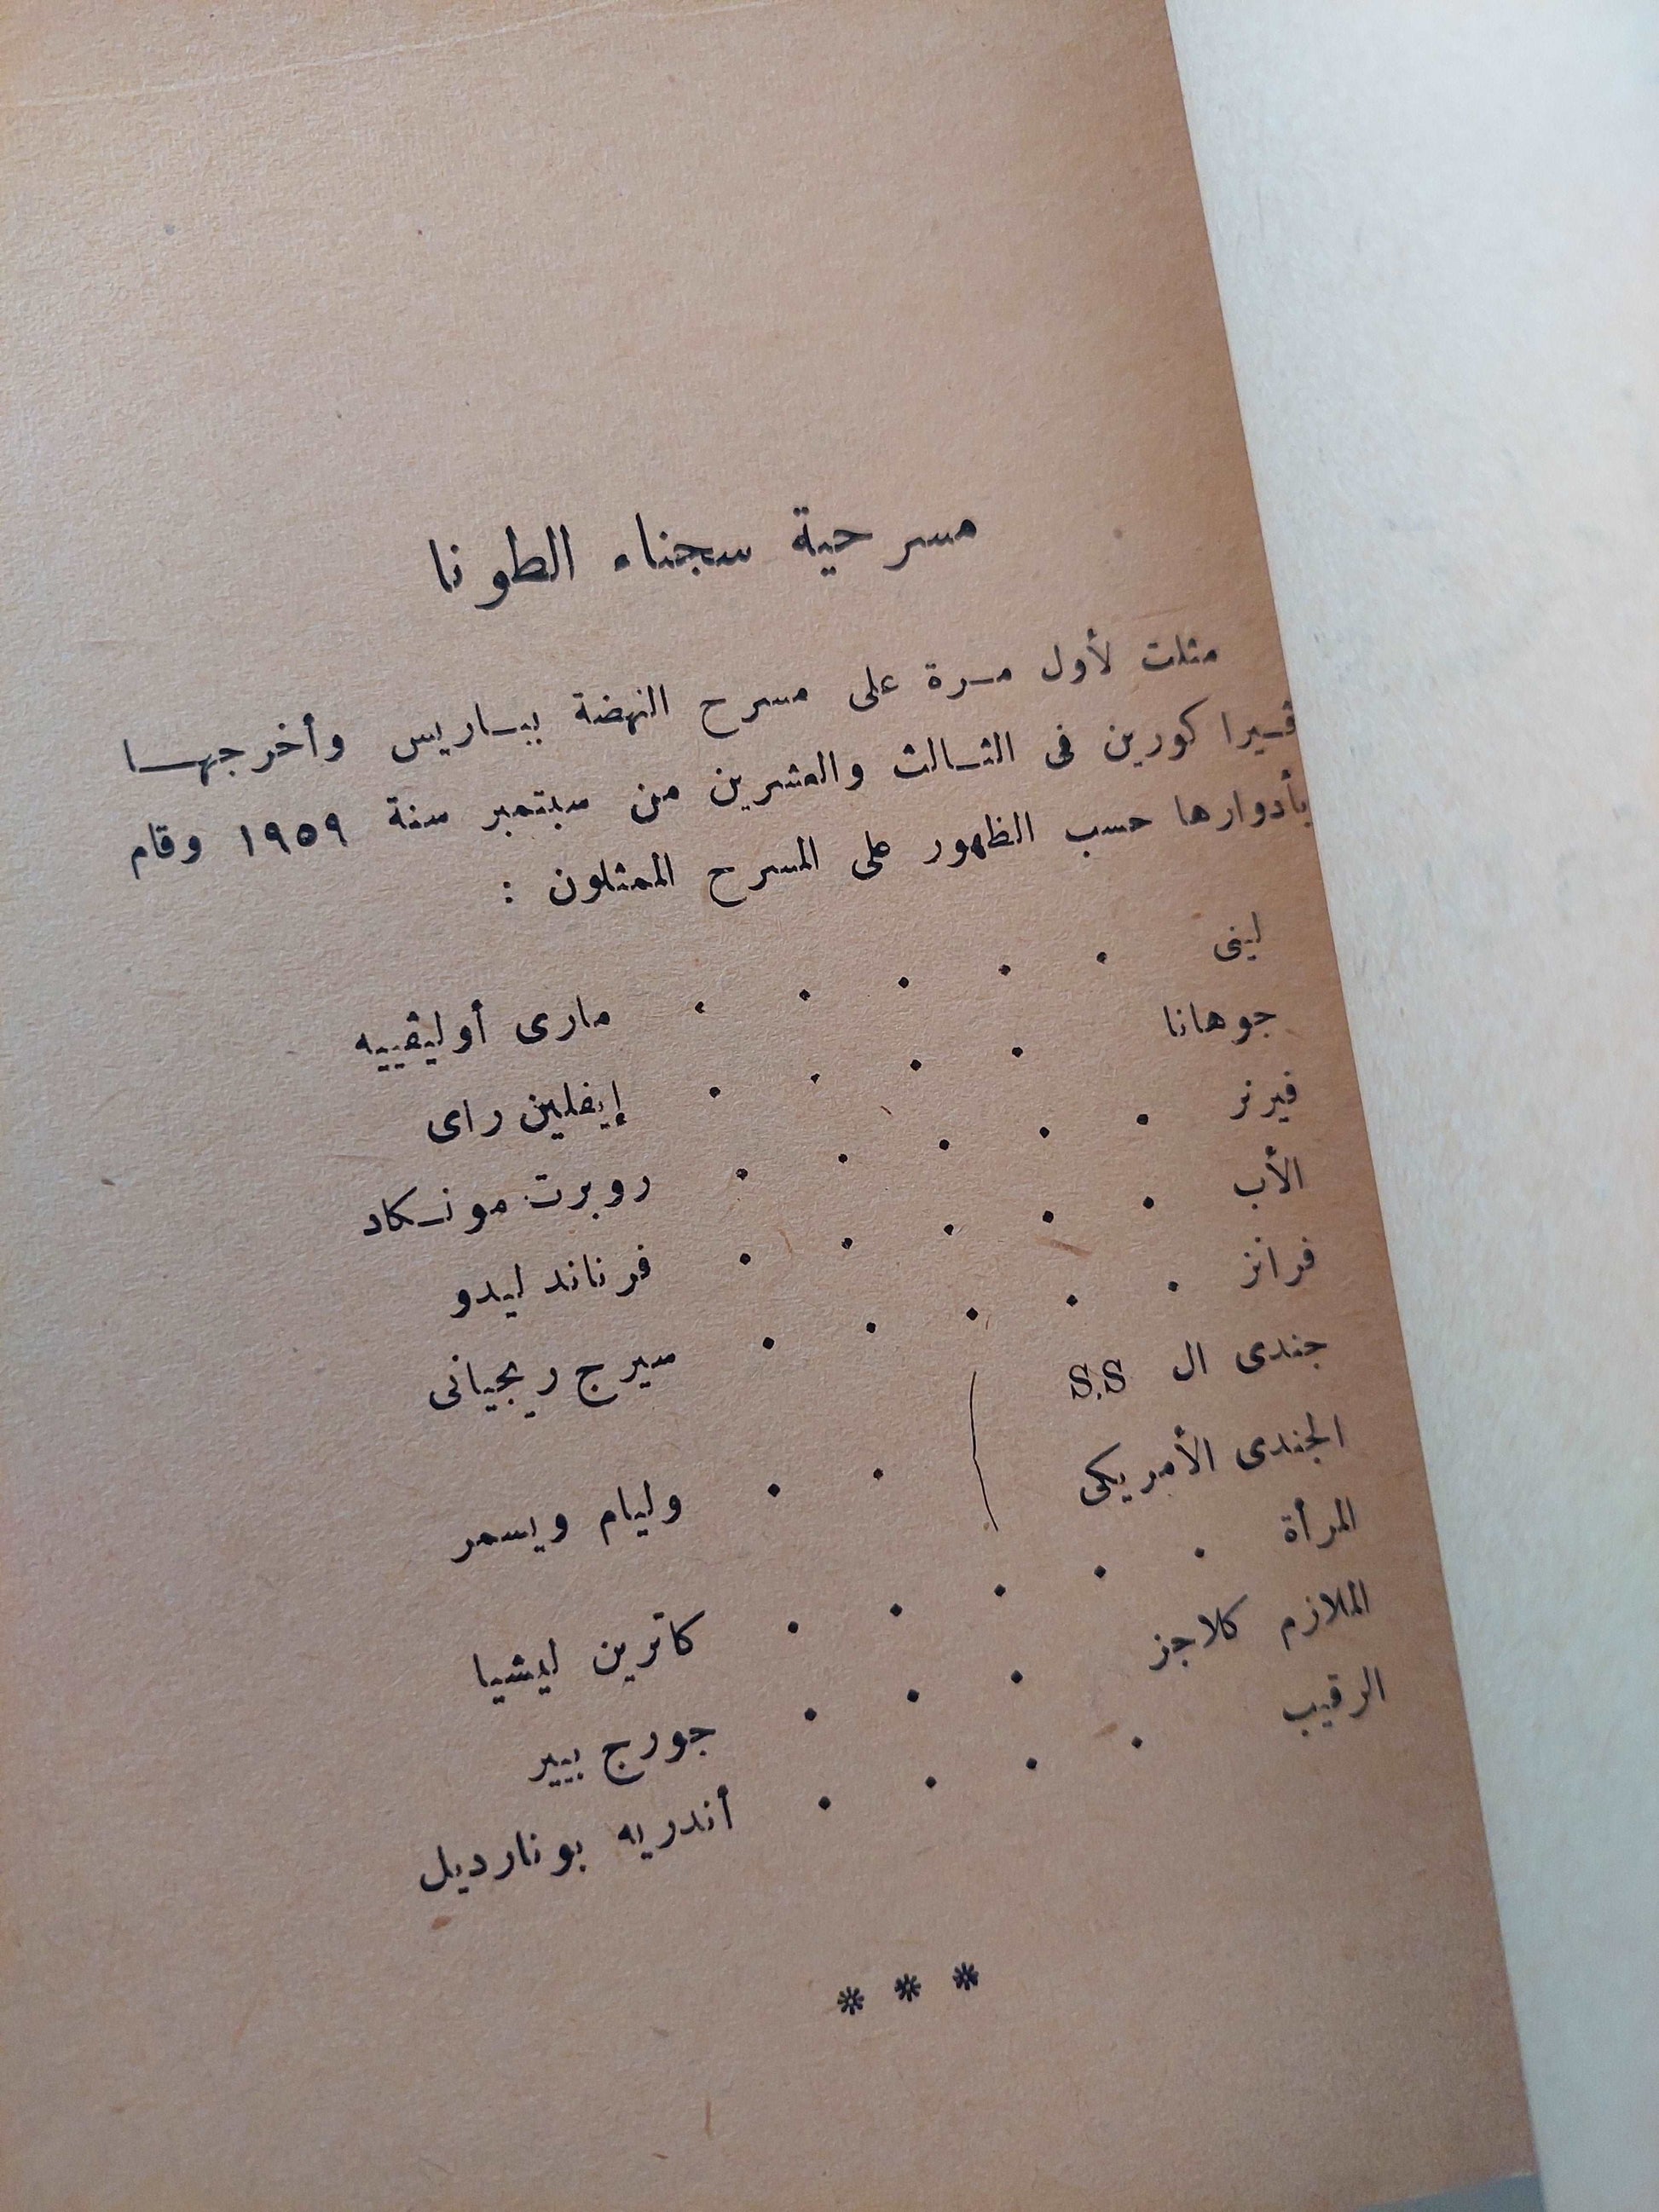 مسرحية سجناء الطونا
مثلت لأول مرة على مسرح النهضة بباريس وأخرجها
ڤيرا كورين فى الثالث والعشرين من سبتمبر سنة ١٩٥٩ وقام
بأدوارها حسب الظهور على المسرح الممثلون :
لينى . . . . . مارى أوليڤييه
جوهانا . . . . إيفلين راى
فيرنر . . . . . روبرت مونكاد
الأب . . . . . فرناند ليدو
فرانز . . . . . سيرج ريجيانى
جندى ال S.S
الجندى الأمريكى . . وليام ويسمر
المرأة . . . . . كاترين ليشيا
الملازم كلاجز . . . جورج بيير
الرقيب . . . . أندريه بونارديل
* * *